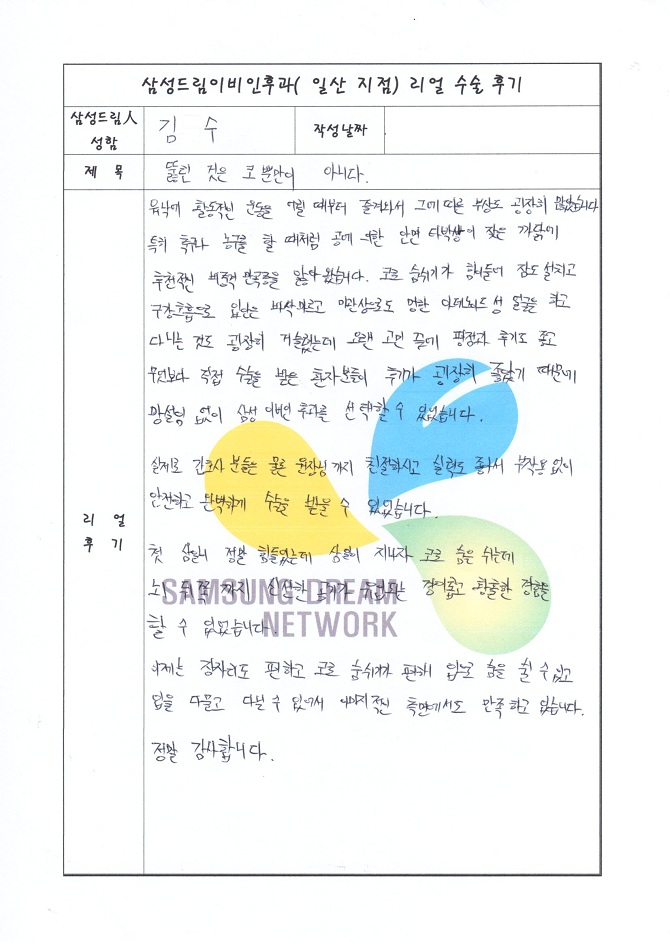 삼성드림이비인후과( 일산 지점) 리얼 수술 후기
삼성드림人
성함
김 수
작성날짜
제 목
뚫린 것은 코 뿐만이 아니다.
리 얼
후 기
활동적인 운동을 어릴 때부터 즐겨와서 그에 따른 부상도 굉장히 많았습니다
특히 축구나 농구를 할 때처럼 공에 의한 안면 타박상이 잦은 까닭에
후천적인 비중격 만곡증을 앓아 왔습니다. 코로 숨쉬기가 힘들어 잠도 설치고
구강호흡으로 입안은 바싹 마르고 미관상으로도 멍한 아데노이드성 얼굴을 하고
다니는 것도 굉장히 거슬렸는데 오랜 고민 끝에 평점과 후기도 좋고
무엇보다 직접 수술을 받은 환자분들의 후기가 굉장히 좋았기 때문에
망설임 없이 삼성 이비인 후과를 선택할 수 있었습니다.
실제로 간호사 분들은 물론 원장님 까지 친절하시고 실력도 좋아서 부작용 없이
안전하고 완벽하게 수술을 받을 수 있었습니다.
첫 삼일이 정말 힘들었는데 삼일이 지나자 코로 숨을 쉬는데
뇌 까지 신선한 공기가 경이롭고 황홀한 경험을
할 수 있었습니다.
이제는 잠자리도 편하고 코로 숨쉬기가 편해 입으로 숨을 쉴 수 있고
입을 다물고 다닐 수 있어서 이미지적인 측면에서도 만족하고 있습니다.
정말 감사합니다.
SAMSUNG DREAM
NETWORK